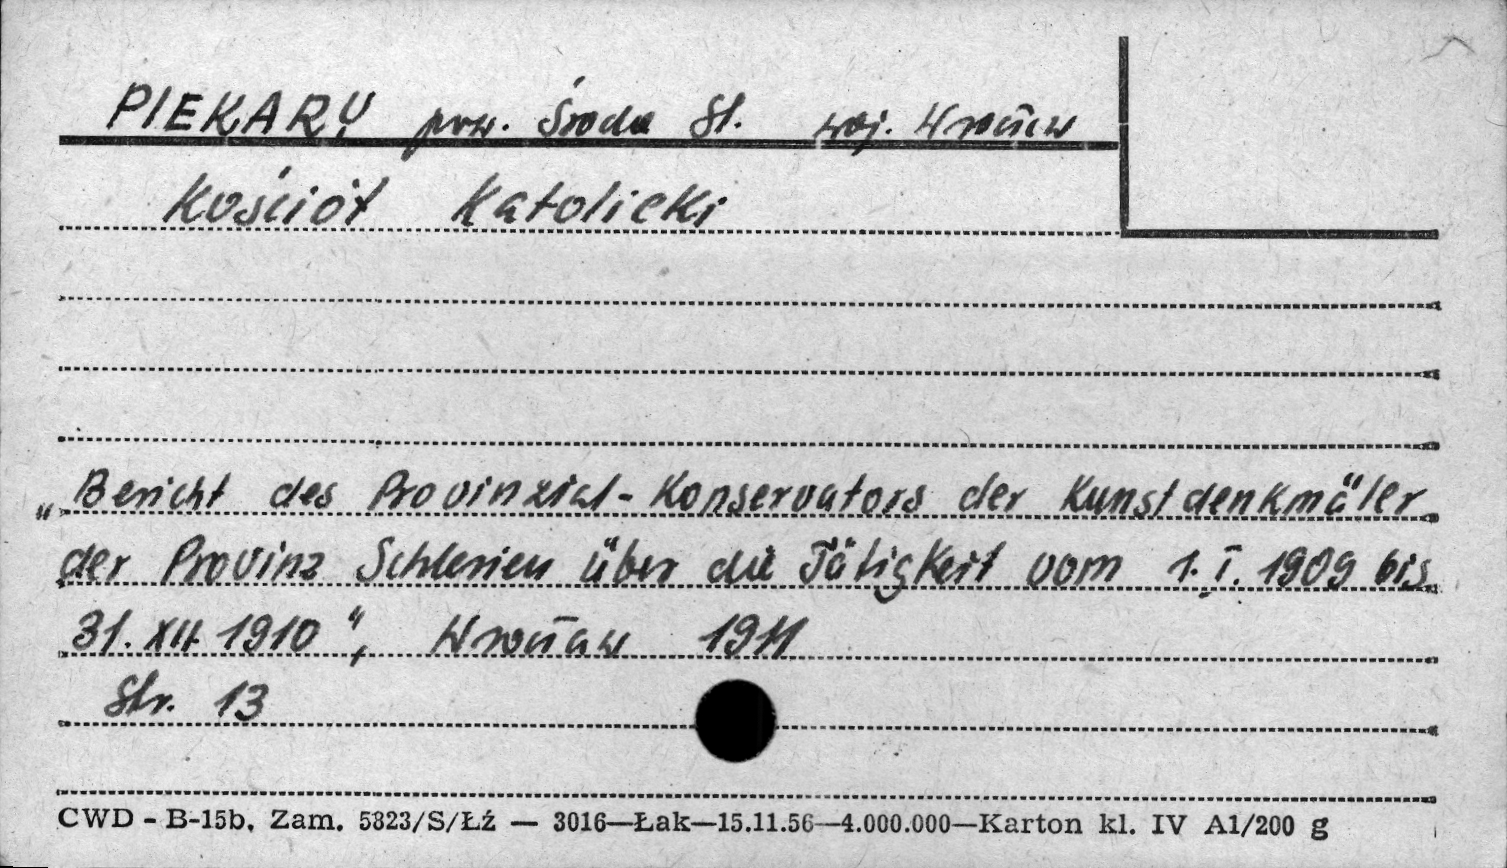 PIEKARY pow. Środa Śl. woj. Wrocław
Kościół Katolicki
„Bericht des Provinzial-Konservators der Kunstdenkmäler
der Provinz Schlesien über die Tätigkeit vom 1.I.1909 bis
31.XII 1910", Wrocław 1911
Str. 13
CWD - B-15b. Zam. 5823/S/Łź — 3016—Łak—15.11.56—4.000.000—Karton kl. IV A1/200 g